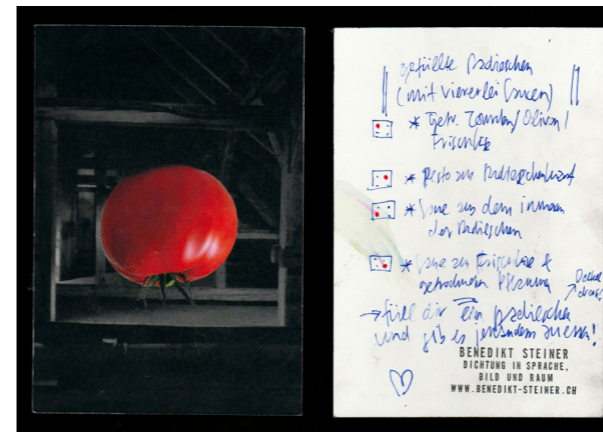 gefüllte Radieschen
(mit viererlei Saucen)
* Getr. Tomaten/Oliven/
Frischkäse
* Pesto aus Radieschenkraut
* Sauce aus dem inneren
der Radieschen
* Sauce aus Frischkäse &
getrockneten Pflaumen
Deckel
drauf!
→ füll dir ein Radieschen
und gib es jemandem zu essen!
BENEDIKT STEINER
DICHTUNG IN SPRACHE,
BILD UND RAUM
WWW.BENEDIKT-STEINER.CH